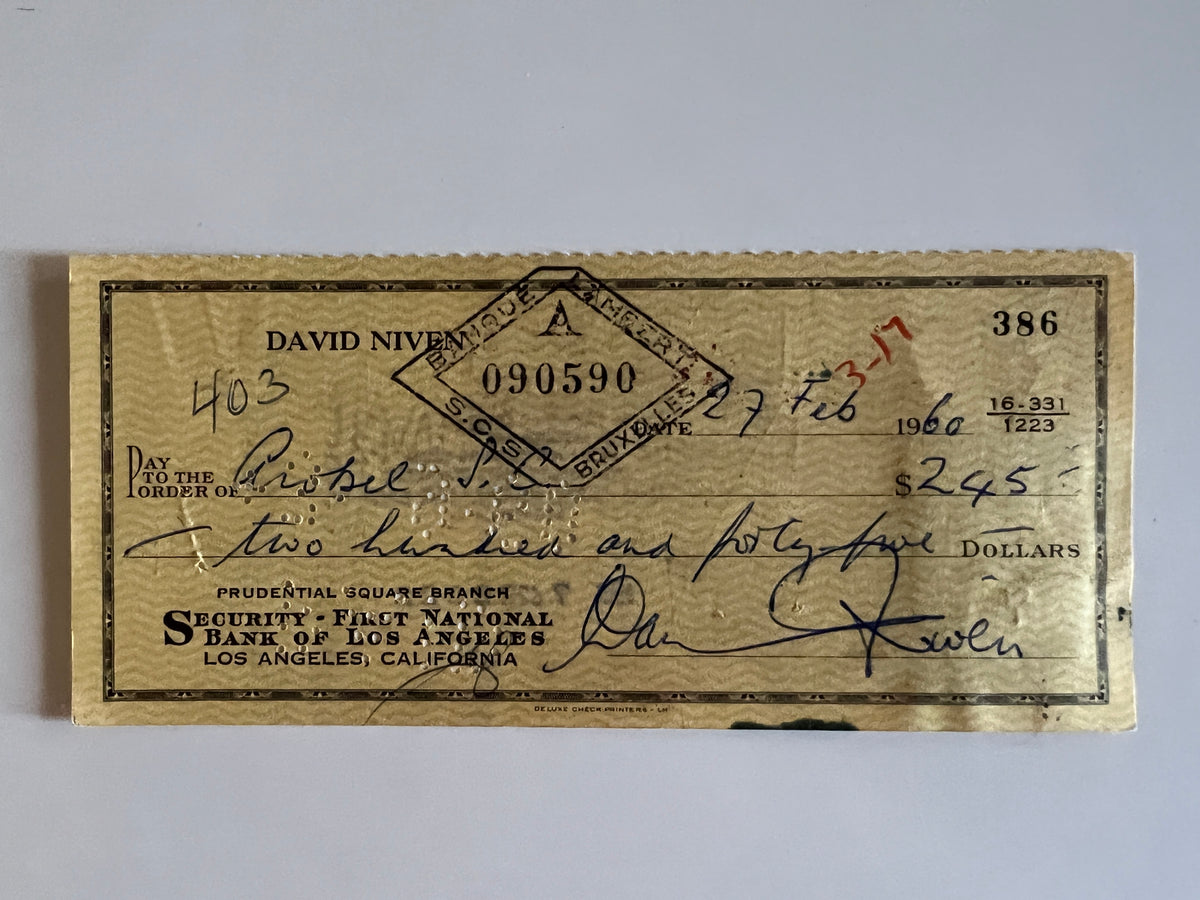 DAVID NIVEN
BANQUE LAMBERT
A
090590
S.C.S. BRUXELLES
3-17
386
403
DATE 27 Feb 1960
16-331
1223
PAY TO THE ORDER OF Probel S.C. $245
two hundred and forty-five DOLLARS
PRUDENTIAL SQUARE BRANCH
SECURITY-FIRST NATIONAL
BANK OF LOS ANGELES
LOS ANGELES, CALIFORNIA
David Niven
DELUXE CHECK PRINTERS - LH